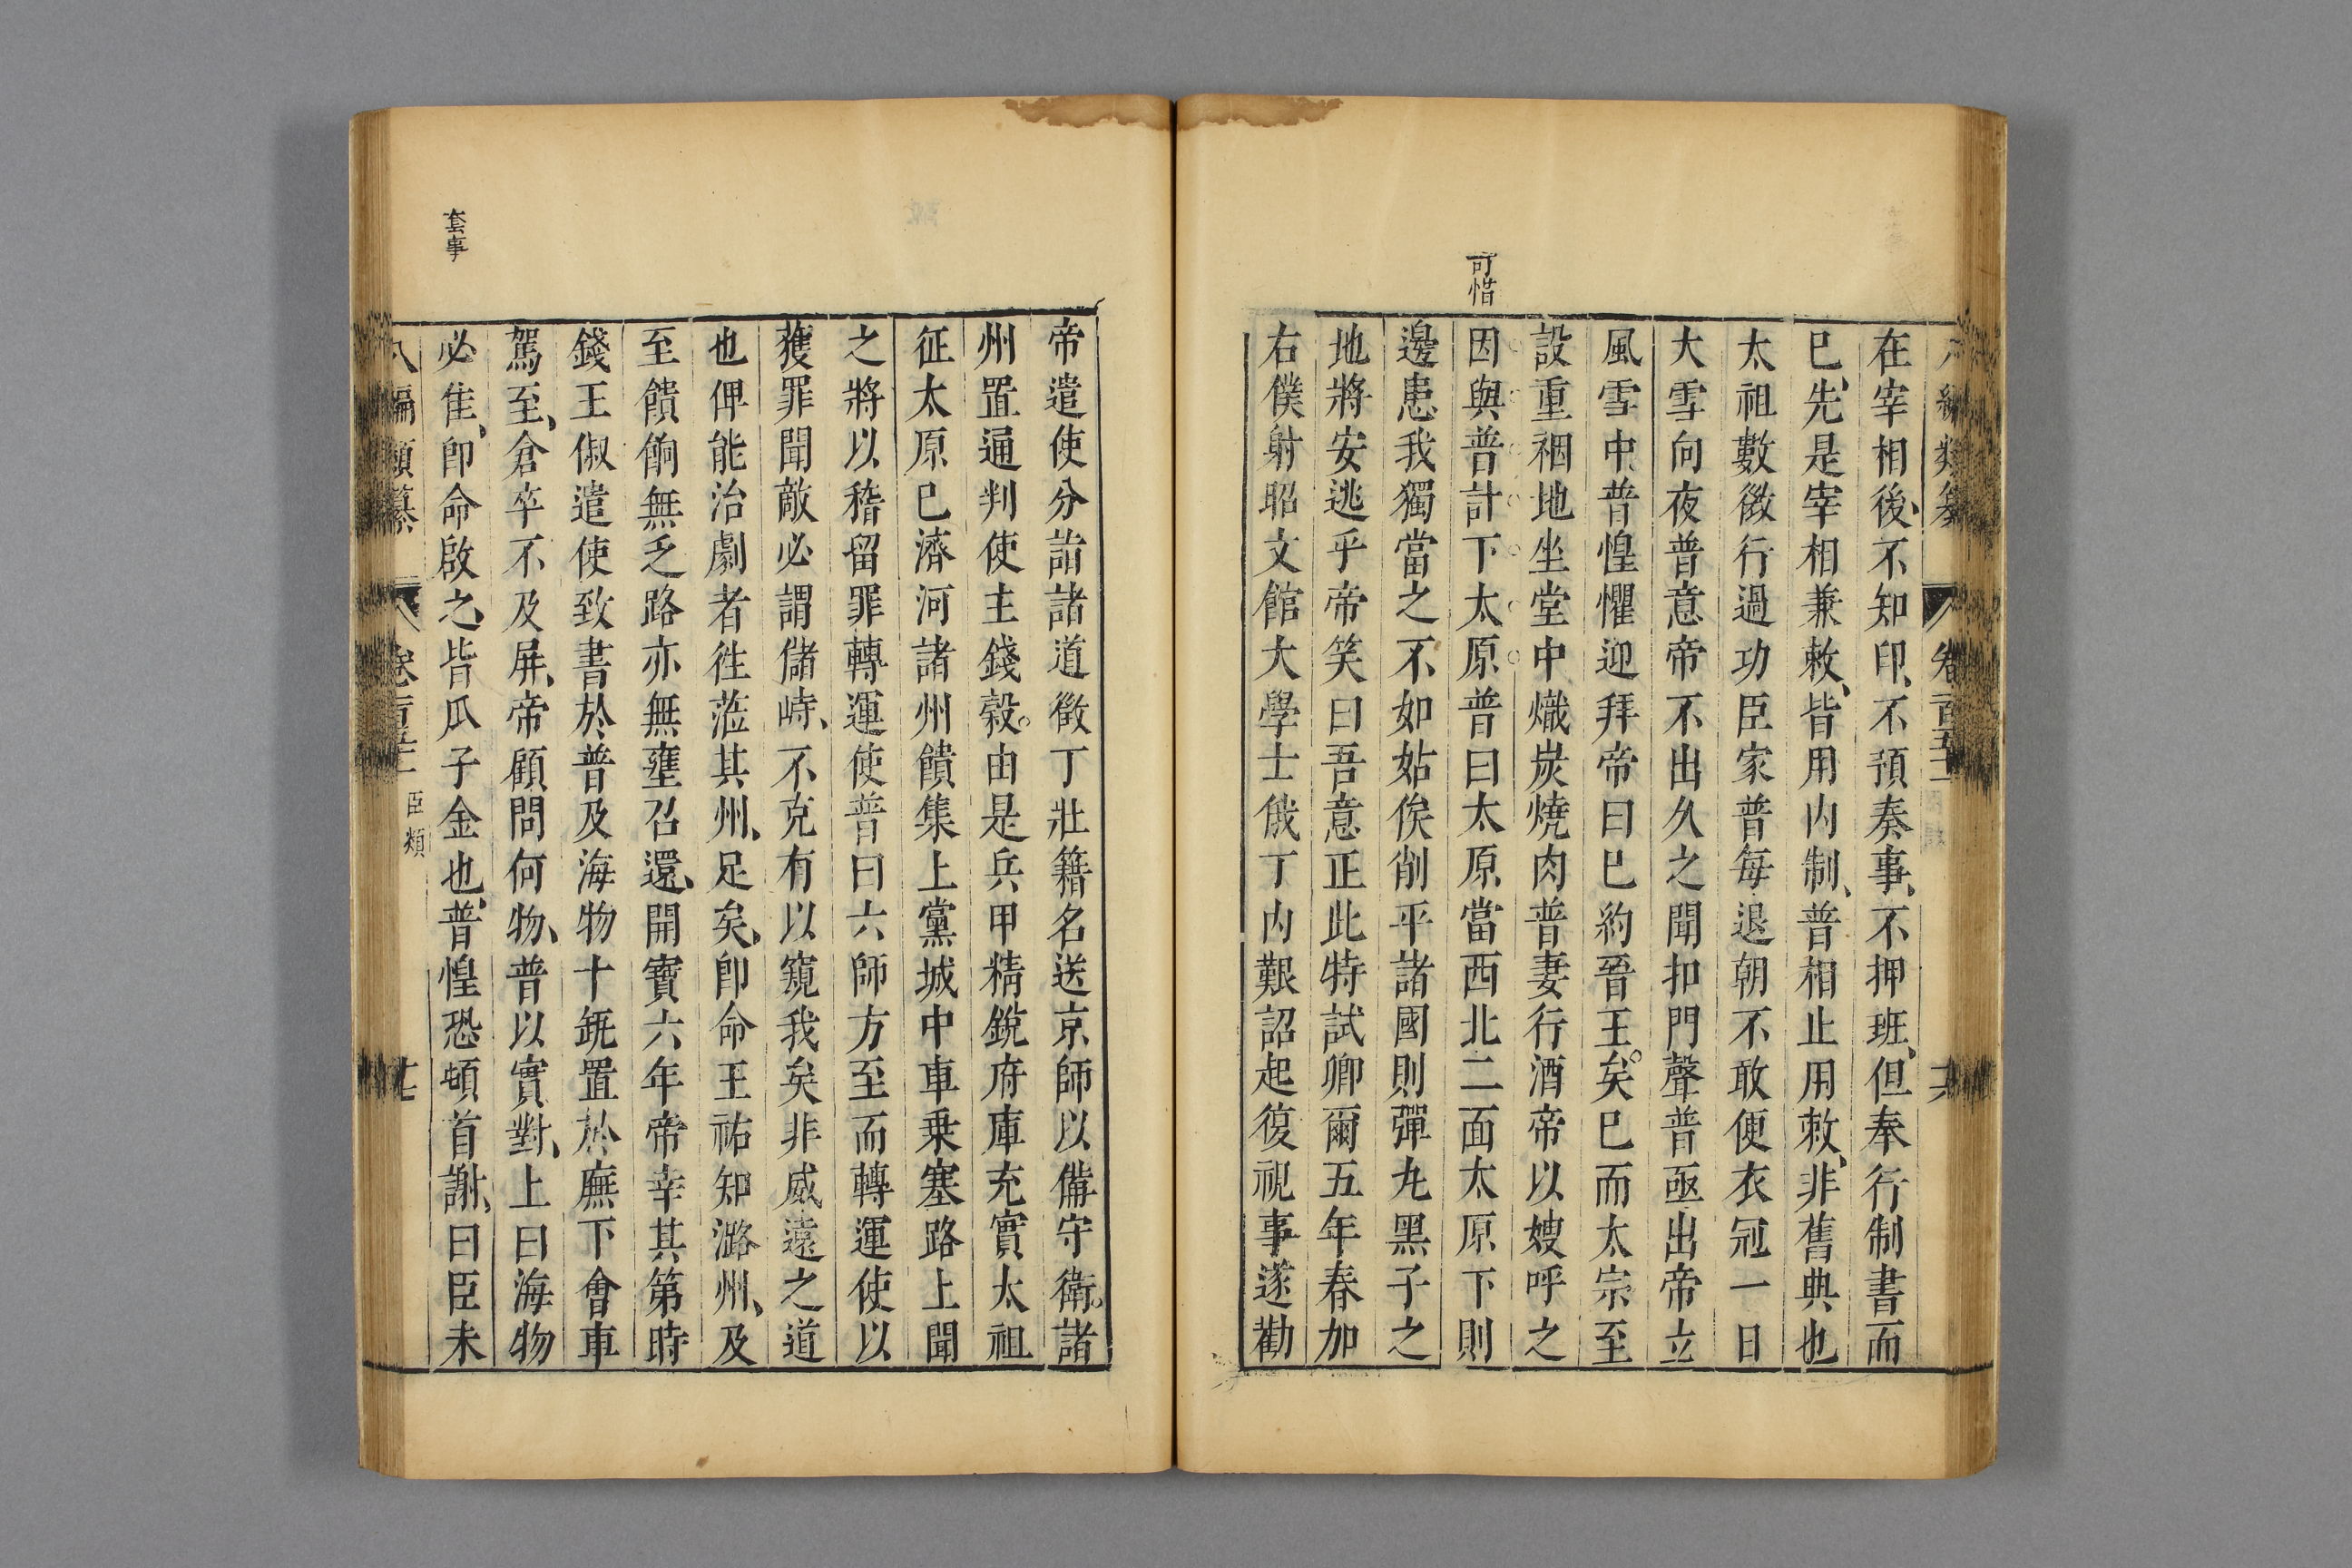 在宰相後不知印不預奏事不押班但奉行制書而
已先是宰相兼敕皆用内制普相止用敕非舊典也
太祖數微行過功臣家普每退朝不敢便衣冠一日
大雪向夜普意帝不出久之聞扣門聲普亟出帝立
風雪中普惶懼迎拜帝曰已約晉王矣已而太宗至
設重裀地坐堂中熾炭燒肉普妻行酒帝以嫂呼之
可惜
因與普計下太原普曰太原當西北二面太原下則
邊患我獨當之不如姑俟削平諸國則彈丸黑子之
地將安逃乎帝笑曰吾意正此特試卿爾五年春加
右僕射昭文館大學士俄丁内艱詔起復視事遂勸
帝遣使分詣諸道徵丁壯籍名送京師以備守衛諸
州置通判使主錢穀由是兵甲精銳府庫充實太祖
征太原已濟河諸州饋集上黨城中車乗塞路上聞
之將以稽留罪轉運使普曰六師方至而轉運使以
獲罪聞敵必謂儲峙不克有以窺我矣非威遠之道
也俾能治劇者徃蒞其州足矣卽命王祐知潞州及
至饋餉無乏路亦無壅召還開寳六年帝幸其第時
錢王俶遣使致書於普及海物十缾置於廡下會車
駕至倉卒不及屏帝顧問何物普以實對上曰海物
套事
必佳卽命啟之皆瓜子金也普惶恐頓首謝曰臣未
八編類纂 卷百 臣類